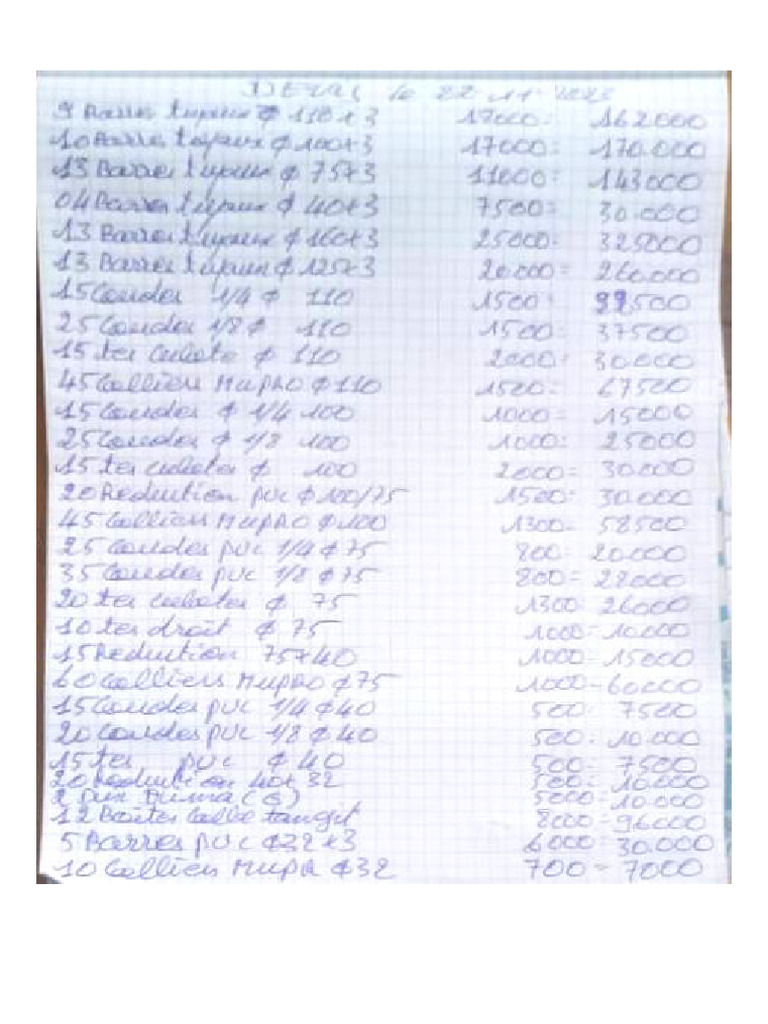 DEVIS le 22-11-2022
9 Barres tuyaux ϕ 110+3 17000= 162000
10 Barres tuyaux ϕ 100+3 17000= 170.000
13 Barres tuyaux ϕ 75+3 11000= 143000
04 Barres tuyaux ϕ 40+3 7500= 30.000
13 Barres tuyaux ϕ 160+3 25000= 325000
13 Barres tuyaux ϕ 125+3 20.000= 260.000
15 Coudes 1/4 ϕ 110 1500= 22500
25 Coudes 1/8 ϕ 110 1500= 37500
15 tes culote ϕ 110 2000= 30.000
45 Colliers MupRO ϕ 110 1500= 67500
15 Coudes ϕ 1/4 100 1000= 15000
25 Coudes ϕ 1/8 100 1000= 25000
15 tes culotes ϕ 100 2000= 30.000
20 Reduction pvc ϕ 100/75 1500= 30.000
45 Colliers MupRO ϕ 100 1300= 58500
25 Coudes pvc 1/4 ϕ 75 800= 20.000
35 Coudes pvc 1/8 ϕ 75 800= 28000
20 tes culotes ϕ 75 1300= 26000
10 tes droit ϕ 75 1000= 10.000
15 Reduction 75+40 1000= 15000
60 Colliers MupRO ϕ 75 1000= 60000
15 Coudes pvc 1/4 ϕ 40 500= 7500
20 Coudes pvc 1/8 ϕ 40 500= 10.000
15 tes pvc ϕ 40 500= 7500
20 Reduction 40+32 500= 10.000
2 (6) 5000= 10.000
12 Boites Colle tangit 8000= 96000
5 Barres pvc ϕ 32+3 6000= 30.000
10 Colliers MupR ϕ 32 700= 7000